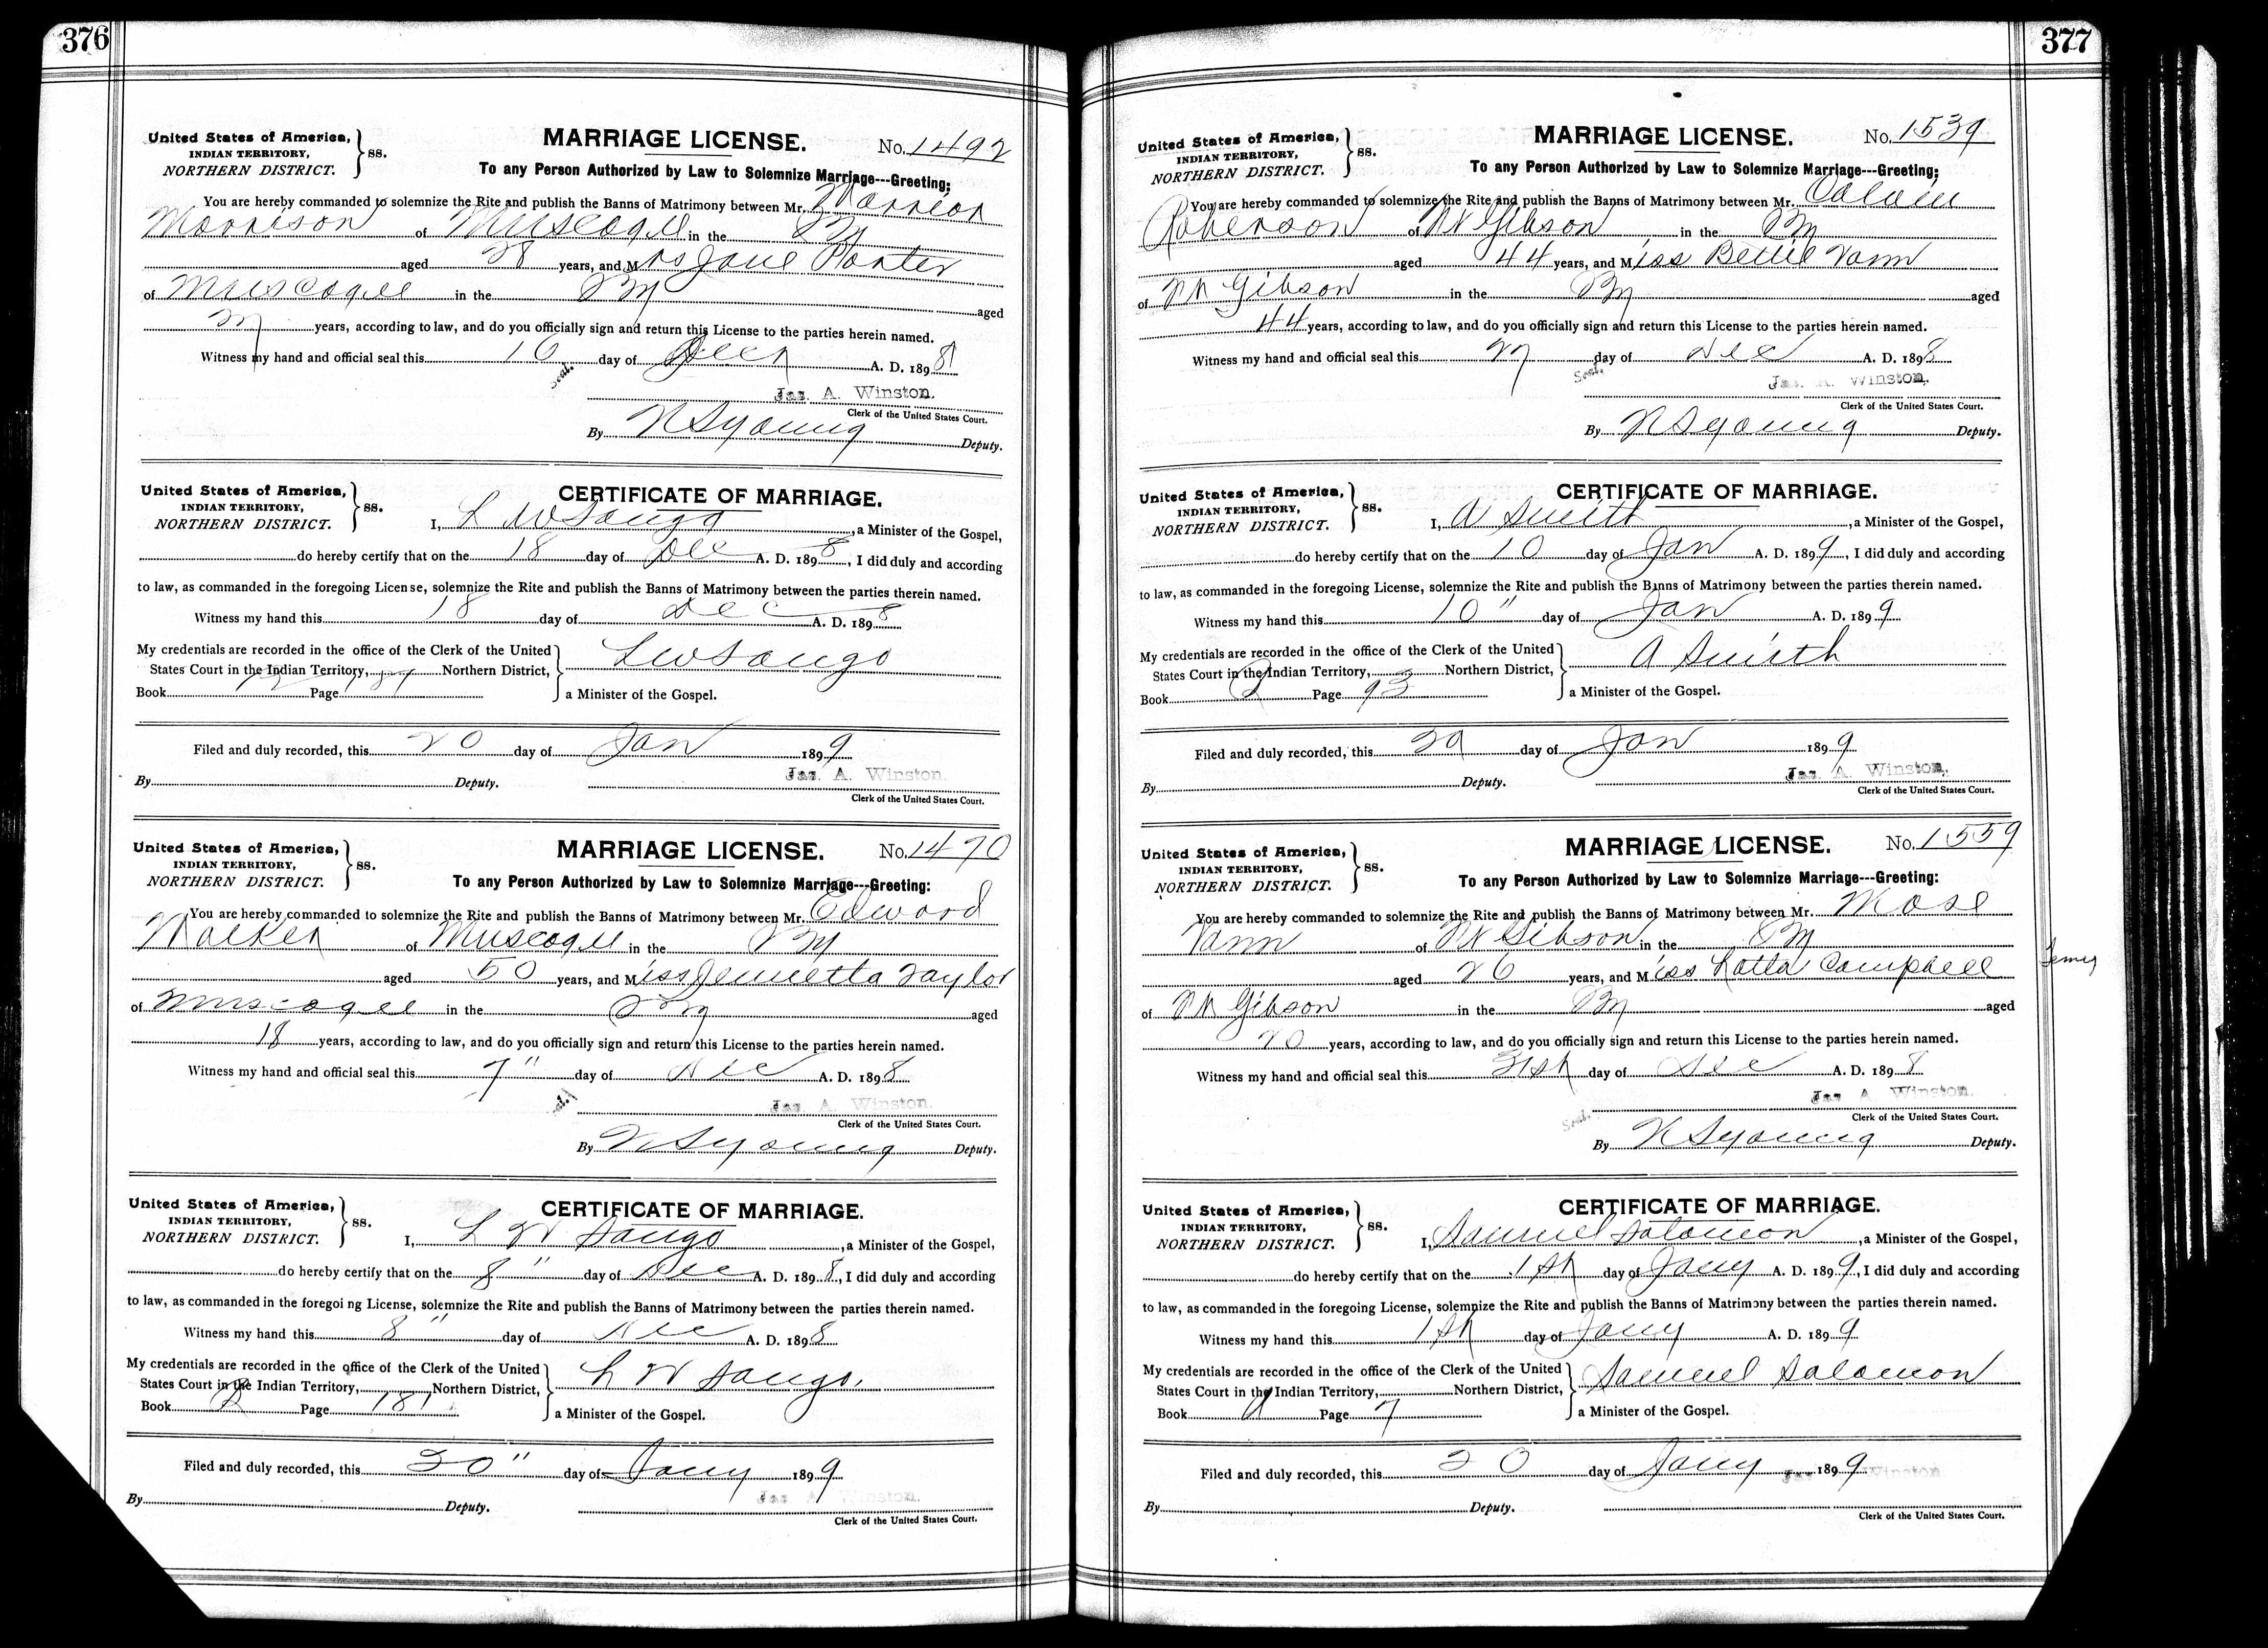 376
United States of America,
INDIAN TERRITORY,
NORTHERN DISTRICT.
ss.
MARRIAGE LICENSE.
No. 1492
To any Person Authorized by Law to Solemnize Marriage---Greeting:
You are hereby commanded to solemnize the Rite and publish the Banns of Matrimony between Mr.
Morrison of Muscogee in the
aged 28 years, and Mrs Jane Porter
of Muscogee in the aged
years, according to law, and do you officially sign and return this License to the parties herein named.
Witness my hand and official seal this 16 day of Dec A. D. 1898
Seal.
Jas. A. Winston.
Clerk of the United States Court.
By N S Young Deputy.
United States of America,
INDIAN TERRITORY,
NORTHERN DISTRICT.
ss.
CERTIFICATE OF MARRIAGE.
I, L W Sango, a Minister of the Gospel,
do hereby certify that on the 18 day of Dec A. D. 1898, I did duly and according
to law, as commanded in the foregoing License, solemnize the Rite and publish the Banns of Matrimony between the parties therein named.
Witness my hand this 18 day of Dec A. D. 1898
My credentials are recorded in the office of the Clerk of the United
States Court in the Indian Territory, Northern District,
Book Page
L W Sango
a Minister of the Gospel.
Filed and duly recorded, this 20 day of Jan 1899
Jas. A. Winston.
By Deputy.
Clerk of the United States Court.
United States of America,
INDIAN TERRITORY,
NORTHERN DISTRICT.
ss.
MARRIAGE LICENSE.
No. 1470
To any Person Authorized by Law to Solemnize Marriage---Greeting:
You are hereby commanded to solemnize the Rite and publish the Banns of Matrimony between Mr. Edward
Walker of Muscogee in the
aged 50 years, and Miss Jennetta Taylor
of Muscogee in the aged
18 years, according to law, and do you officially sign and return this License to the parties herein named.
Witness my hand and official seal this 7" day of Dec A. D. 1898
Jas A. Winston.
Clerk of the United States Court.
By N S Young Deputy.
United States of America,
INDIAN TERRITORY,
NORTHERN DISTRICT.
ss.
CERTIFICATE OF MARRIAGE.
I, L W Sango, a Minister of the Gospel,
do hereby certify that on the 8" day of Dec A. D. 1898, I did duly and according
to law, as commanded in the foregoing License, solemnize the Rite and publish the Banns of Matrimony between the parties therein named.
Witness my hand this 8" day of Dec A. D. 1898
My credentials are recorded in the office of the Clerk of the United
States Court in the Indian Territory, Northern District,
Book B Page 181
L W Sango.
a Minister of the Gospel.
Filed and duly recorded, this 20" day of Jany 1899
Jas A Winston.
By Deputy.
Clerk of the United States Court.
377
United States of America,
INDIAN TERRITORY,
NORTHERN DISTRICT.
ss.
MARRIAGE LICENSE.
No. 1539
To any Person Authorized by Law to Solemnize Marriage---Greeting:
You are hereby commanded to solemnize the Rite and publish the Banns of Matrimony between Mr. Calvin
Roberson of Ft Gibson in the
aged 44 years, and Miss Bettie Vann
of Ft Gibson in the aged
44 years, according to law, and do you officially sign and return this License to the parties herein named.
Witness my hand and official seal this 27 day of Dec A. D. 1898
Seal.
Jas. A. Winston.
Clerk of the United States Court.
By N S Young Deputy.
United States of America,
INDIAN TERRITORY,
NORTHERN DISTRICT.
ss.
CERTIFICATE OF MARRIAGE.
I, A Smith, a Minister of the Gospel,
do hereby certify that on the 10 day of Jan A. D. 1899, I did duly and according
to law, as commanded in the foregoing License, solemnize the Rite and publish the Banns of Matrimony between the parties therein named.
Witness my hand this 10" day of Jan A. D. 1899
My credentials are recorded in the office of the Clerk of the United
States Court in the Indian Territory, Northern District,
Book Page 93
A Smith
a Minister of the Gospel.
Filed and duly recorded, this 20 day of Jan 1899
Jas. A. Winston.
By Deputy.
Clerk of the United States Court.
United States of America,
INDIAN TERRITORY,
NORTHERN DISTRICT.
ss.
MARRIAGE LICENSE.
No. 1559
To any Person Authorized by Law to Solemnize Marriage---Greeting:
You are hereby commanded to solemnize the Rite and publish the Banns of Matrimony between Mr. Mose
Vann of Ft Gibson in the
aged 26 years, and Miss Lotta Campbell
of Ft Gibson in the aged
20 years, according to law, and do you officially sign and return this License to the parties herein named.
Witness my hand and official seal this 31st day of Dec A. D. 1898
Seal.
Jas A Winston.
Clerk of the United States Court.
By N S Young Deputy.
United States of America,
INDIAN TERRITORY,
NORTHERN DISTRICT.
ss.
CERTIFICATE OF MARRIAGE.
I, Samuel Solomon, a Minister of the Gospel,
do hereby certify that on the 1st day of Jany A. D. 1899, I did duly and according
to law, as commanded in the foregoing License, solemnize the Rite and publish the Banns of Matrimony between the parties therein named.
Witness my hand this 1st day of Jany A. D. 1899
My credentials are recorded in the office of the Clerk of the United
States Court in the Indian Territory, Northern District,
Book A Page 7
Samuel Solomon
a Minister of the Gospel.
Filed and duly recorded, this 20 day of Jany 1899
Jas A Winston
By Deputy.
Clerk of the United States Court.